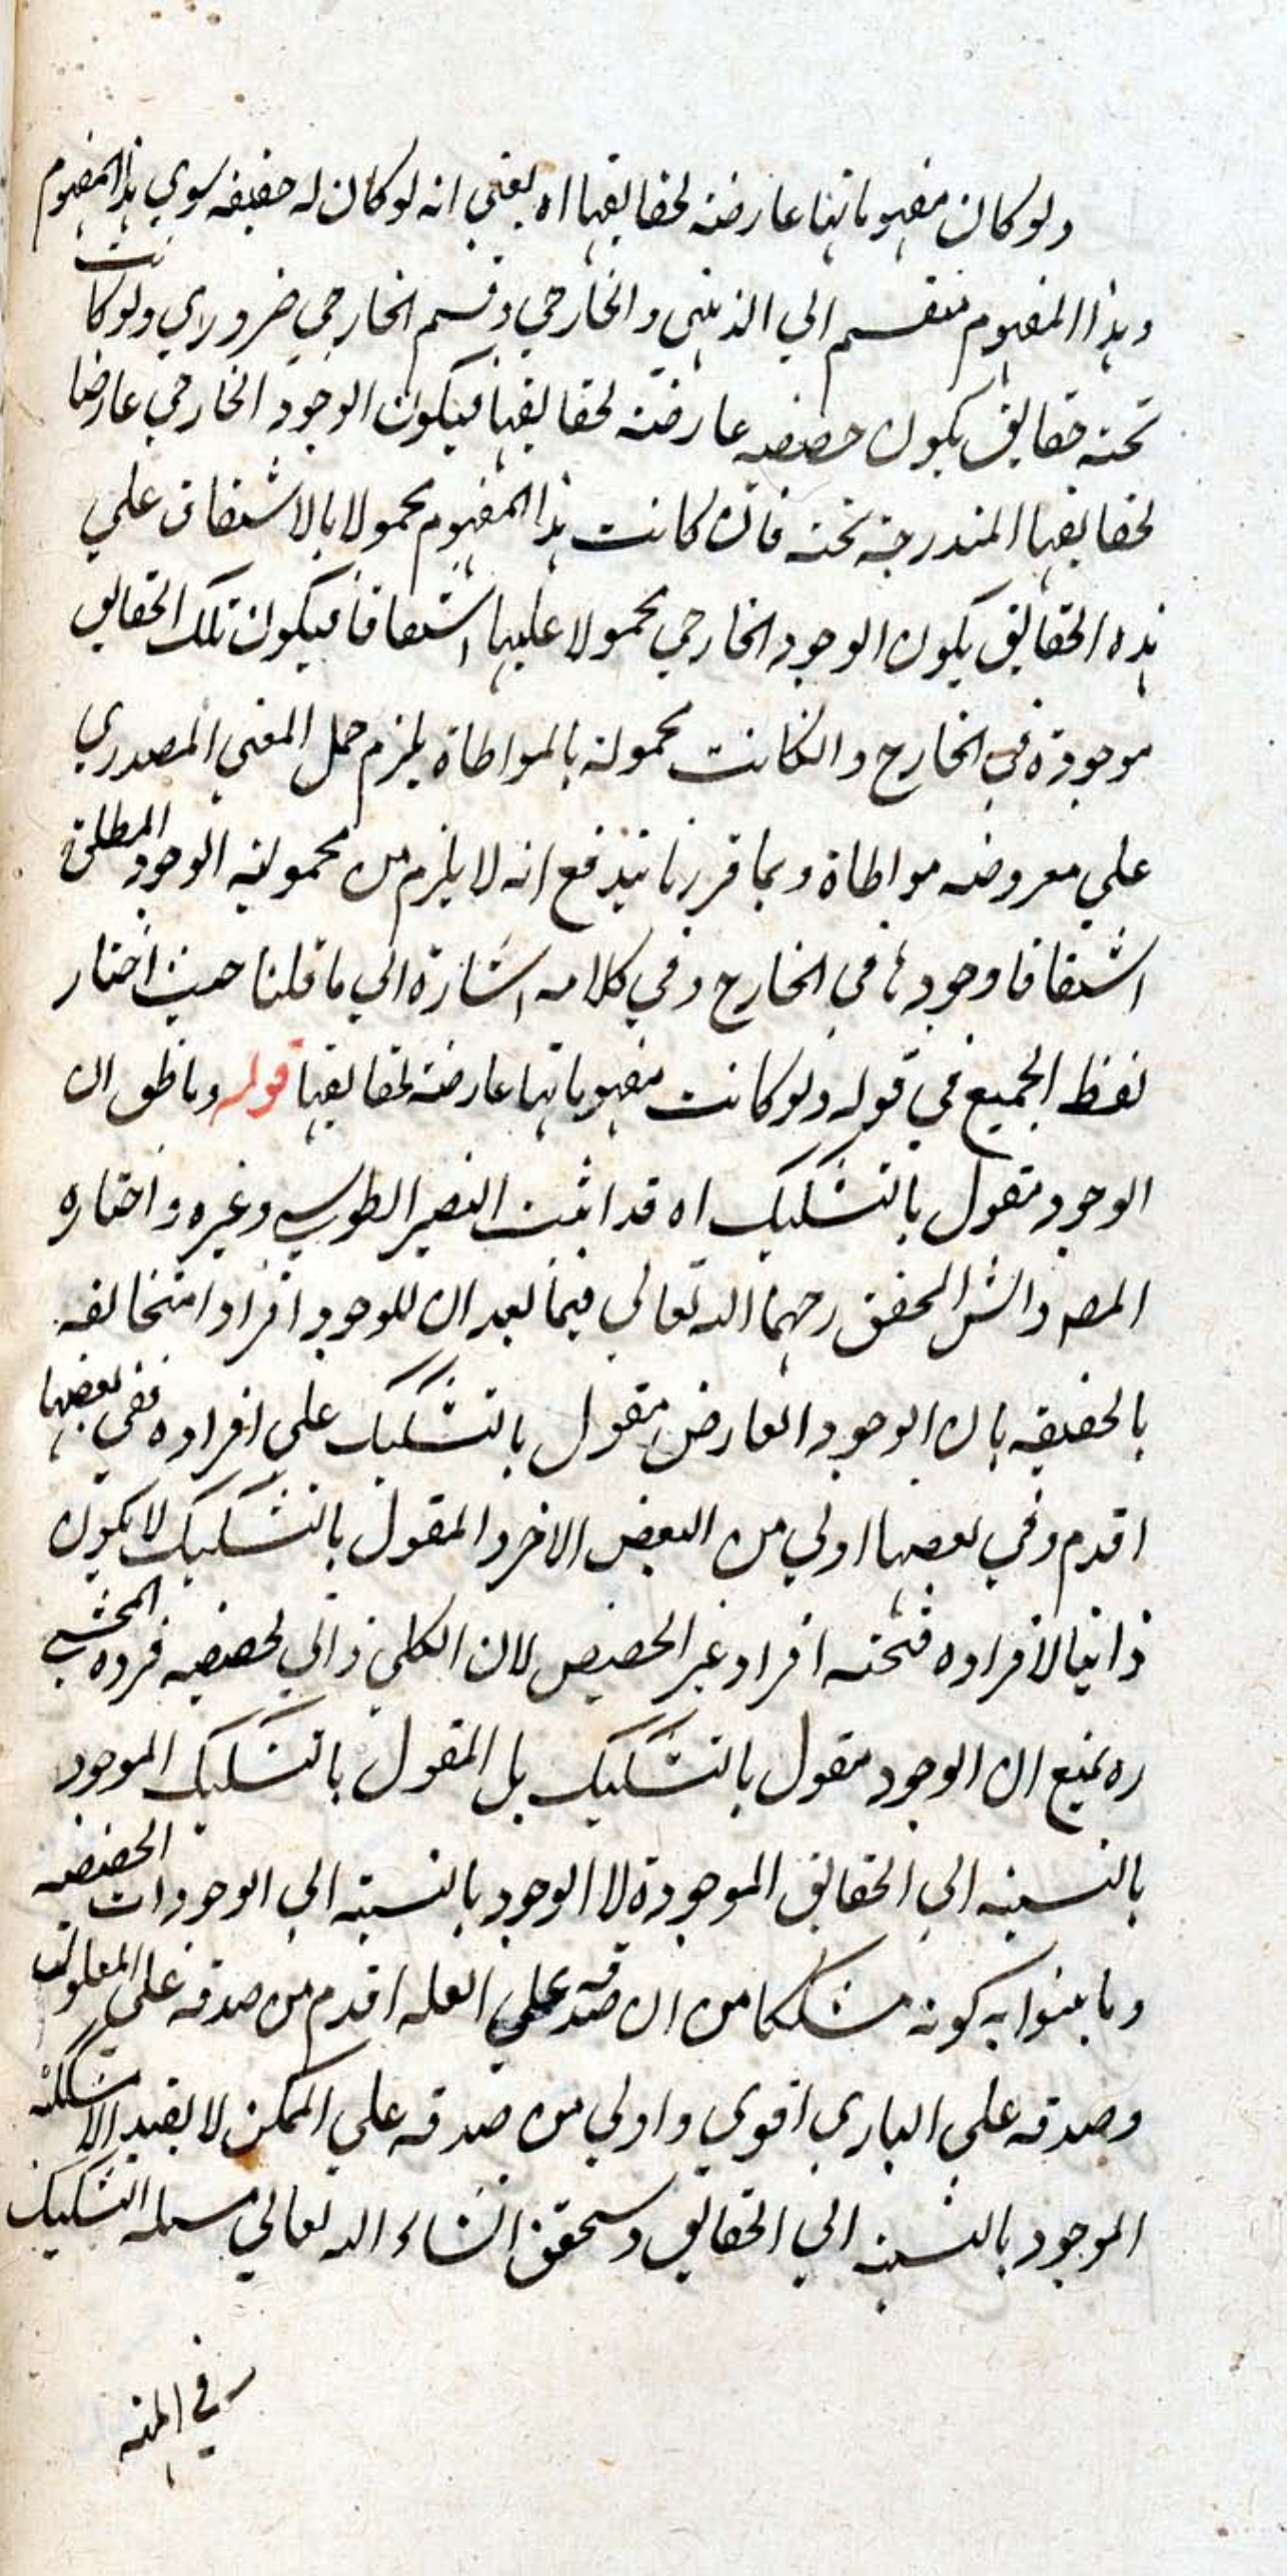 ولو كان مفهوماتها عارضة لحقايقها اه يعني انه لو كان له حقيقه سوي هذا المفهوم
وهذا المفهوم منقسم الي الذهني والخارجي وقسم الخارجي ضروري ولو كانت
تحته حقايق يكون حصصه عارضته لحقايقها فيكون الوجود الخارجي عارضا
لحقايقها المندرجة تحته فان كانت هذا المفهوم محمولا بالاشتقاق علي
هذه الحقايق يكون الوجود الخارجي محمولا عليها اشتقاقا فيكون تلك الحقايق
موجودة في الخارج وانكانت محمولة بالمواطاة يلزم حمل المعني المصدري
علي معروضه مواطاة وبما قررنا يندفع انه لا يلزم من محموليه الوجود المطلق
اشتقاقا وجودها في الخارج وفي كلامه اشارة الي ما قلنا حيث اختار
لفظ الجميع في قوله ولو كانت مفهوماتها عارضة لحقايقها قوله وما ظن ان
الوجود مقول بالتشكيك اه قد اثبت النصير الطوسي وغيره واختاره
المصه والش المحقق رحمهما الله تعالي فيما بعد ان للوجود افرادا متخالفه
بالحقيقه بان الوجود العارض مقول بالتشكيك علي افراده ففي بعضها
اقدم وفي بعضها اولي من البعض الاخر والمقول بالتشكيك لا يكون
ذاتيا لافراده فتحته افراد غير الحصص لان الكلي ذاتي لحصصه فرده المحشي
ره بمنع ان الوجود مقول بالتشكيك بل المقول بالتشكيك الموجود
بالنسبة الي الحقايق الموجودة لا الوجود بالنسبة الي الوجودات الحصصيه
وما بينوا به كونه مشككا من ان صدقه علي العله اقدم من صدقه علي المعلول
وصدقه علي الباري اقوي واولي من صدقه علي الممكن لا يفيد الا مشككية
الموجود بالنسبة الي الحقايق وسيحقق انشاء الله تعالي مسئلة التشكيك
في المنه